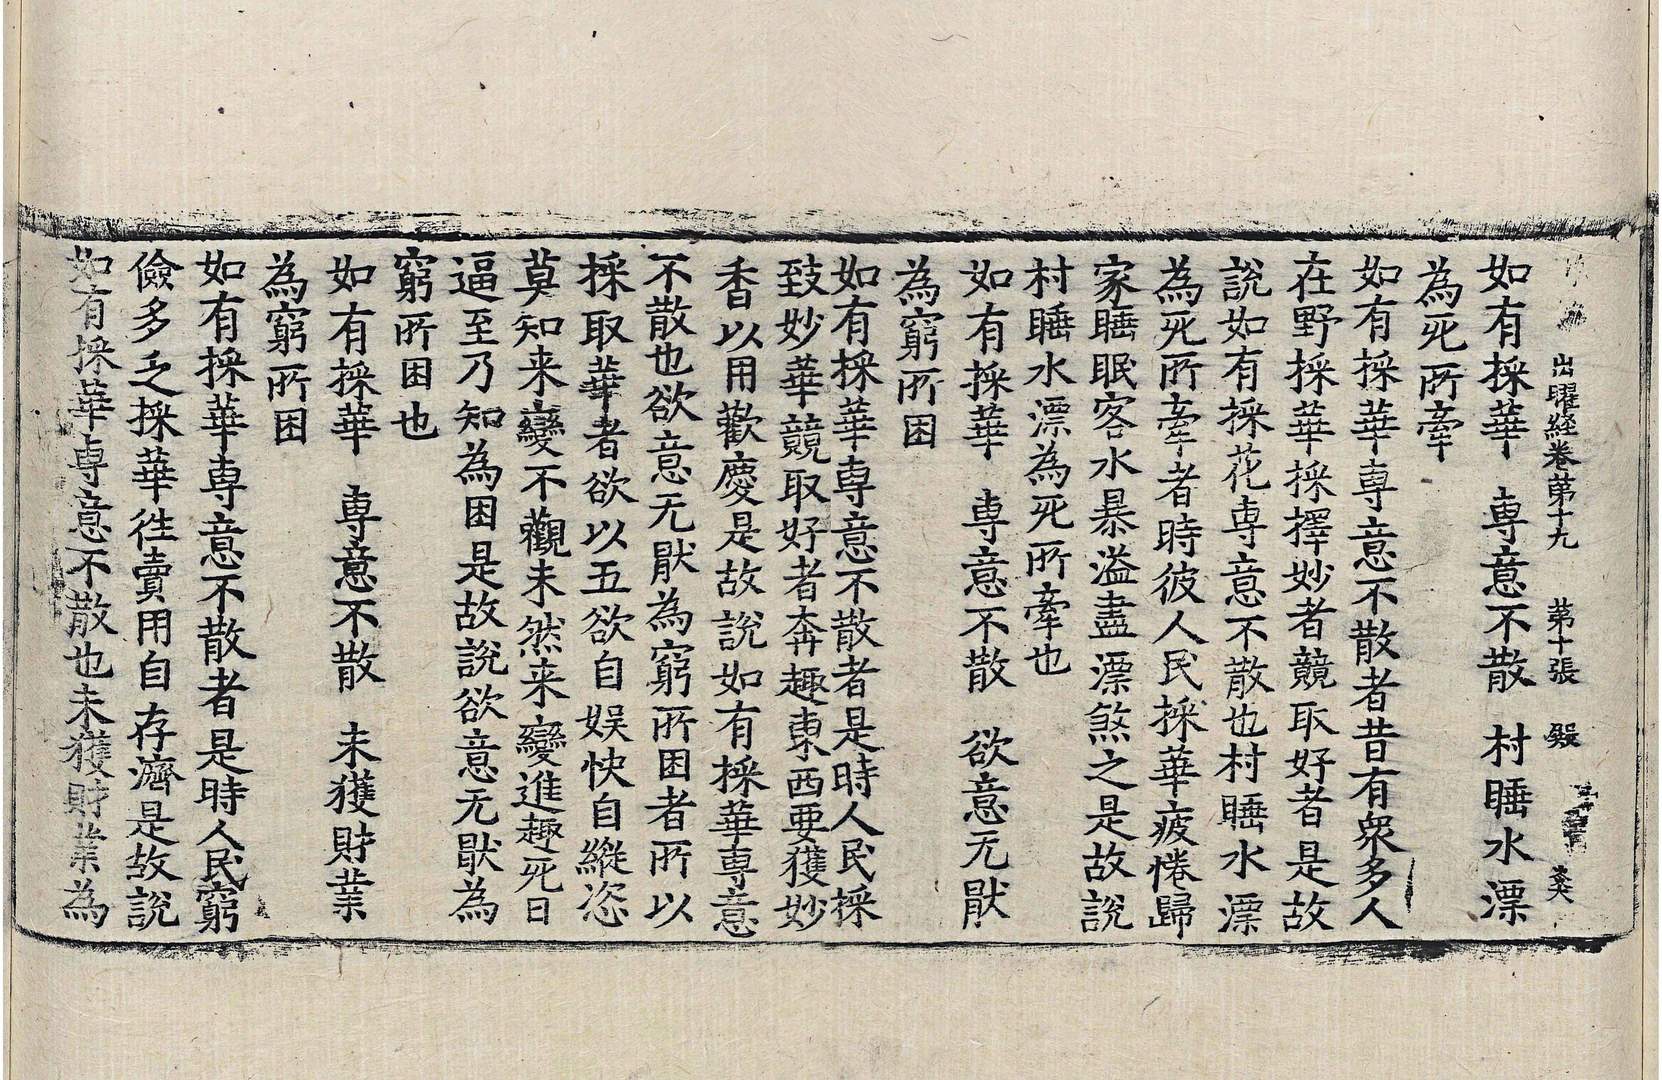 出曜経卷第十九　第十張　殿
如有採華　専意不散　村睡水漂
為死所牽
如有採華専意不散者昔有衆多人
在野採華採擇妙者競取好者是故
説如有採花専意不散也村睡水漂
為死所牽者時彼人民採華疲惓歸
家睡眠客水暴溢盡漂煞之是故説
村睡水漂為死所牽也
如有採華　専意不散　欲意无猒
為窮所困
如有採華専意不散者是時人民採
致妙華競取好者奔趣東西要獲妙
香以用歡慶是故説如有採華専意
不散也欲意无猒為窮所困者所以
採取華者欲以五欲自娱快自縱恣
莫知来變不觀未然来變進趣死日
逼至乃知為困是故説欲意无猒為
窮所困也
如有採華　専意不散　未獲財業
為窮所困
如有採華専意不散者是時人民窮
儉多乏採華徃賣用自存濟是故説
如有採華専意不散也未獲財業為